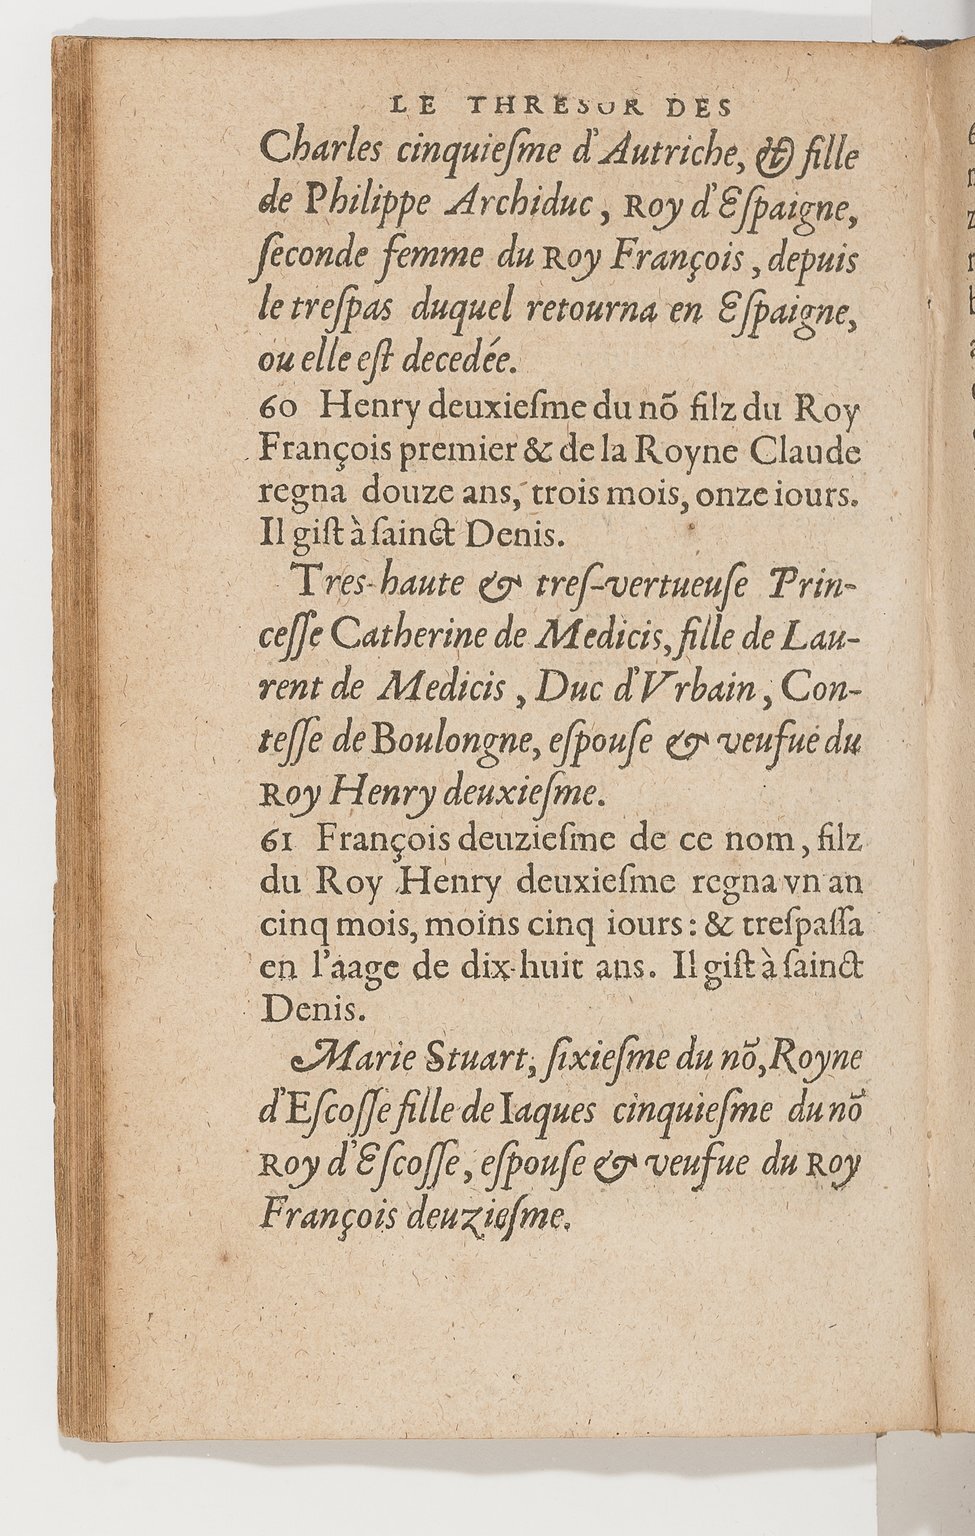 LE THRESOR DES
Charles cinquieſme d'Autriche, & fille
de Philippe Archiduc, Roy d'Eſpaigne,
ſeconde femme du Roy François, depuis
le treſpas duquel retourna en Eſpaigne,
ou elle eſt decedée.
60 Henry deuxieſme du nõ filz du Roy
François premier & de la Royne Claude
regna douze ans, trois mois, onze iours.
Il giſt à ſainct Denis.
Tres-haute & treſ-vertueuſe Prin-
ceſſe Catherine de Medicis, fille de Lau-
rent de Medicis, Duc d'Vrbain, Con-
teſſe de Boulongne, eſpouſe & veufue du
Roy Henry deuxieſme.
61 François deuzieſme de ce nom, filz
du Roy Henry deuxieſme regna vn an
cinq mois, moins cinq iours: & treſpaſſa
en l'aage de dix-huit ans. Il giſt à ſainct
Denis.
Marie Stuart, ſixieſme du nõ, Royne
d'Eſcoſſe fille de Iaques cinquieſme du nõ
Roy d'Eſcoſſe, eſpouſe & veufue du Roy
François deuzieſme.